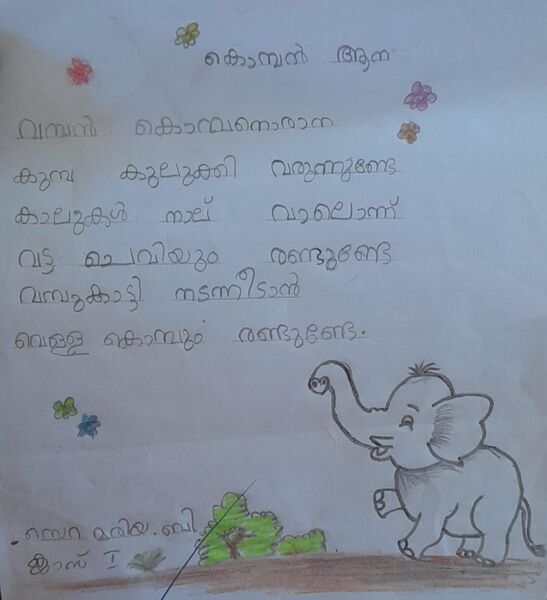 കൊമ്പൻ ആന
വമ്പൻ കൊമ്പനൊരാന
കുമ്പ കുലുക്കി വരുന്നുണ്ടേ
കാലുകൾ നാല് വാലൊന്ന്
വട്ട ചെവിയും രണ്ടുണ്ടേ
വമ്പുകാട്ടി നടന്നീടാൻ
വെള്ള കൊമ്പും രണ്ടുണ്ടേ.
സെറ മരിയ. ബി
ക്ലാസ് I